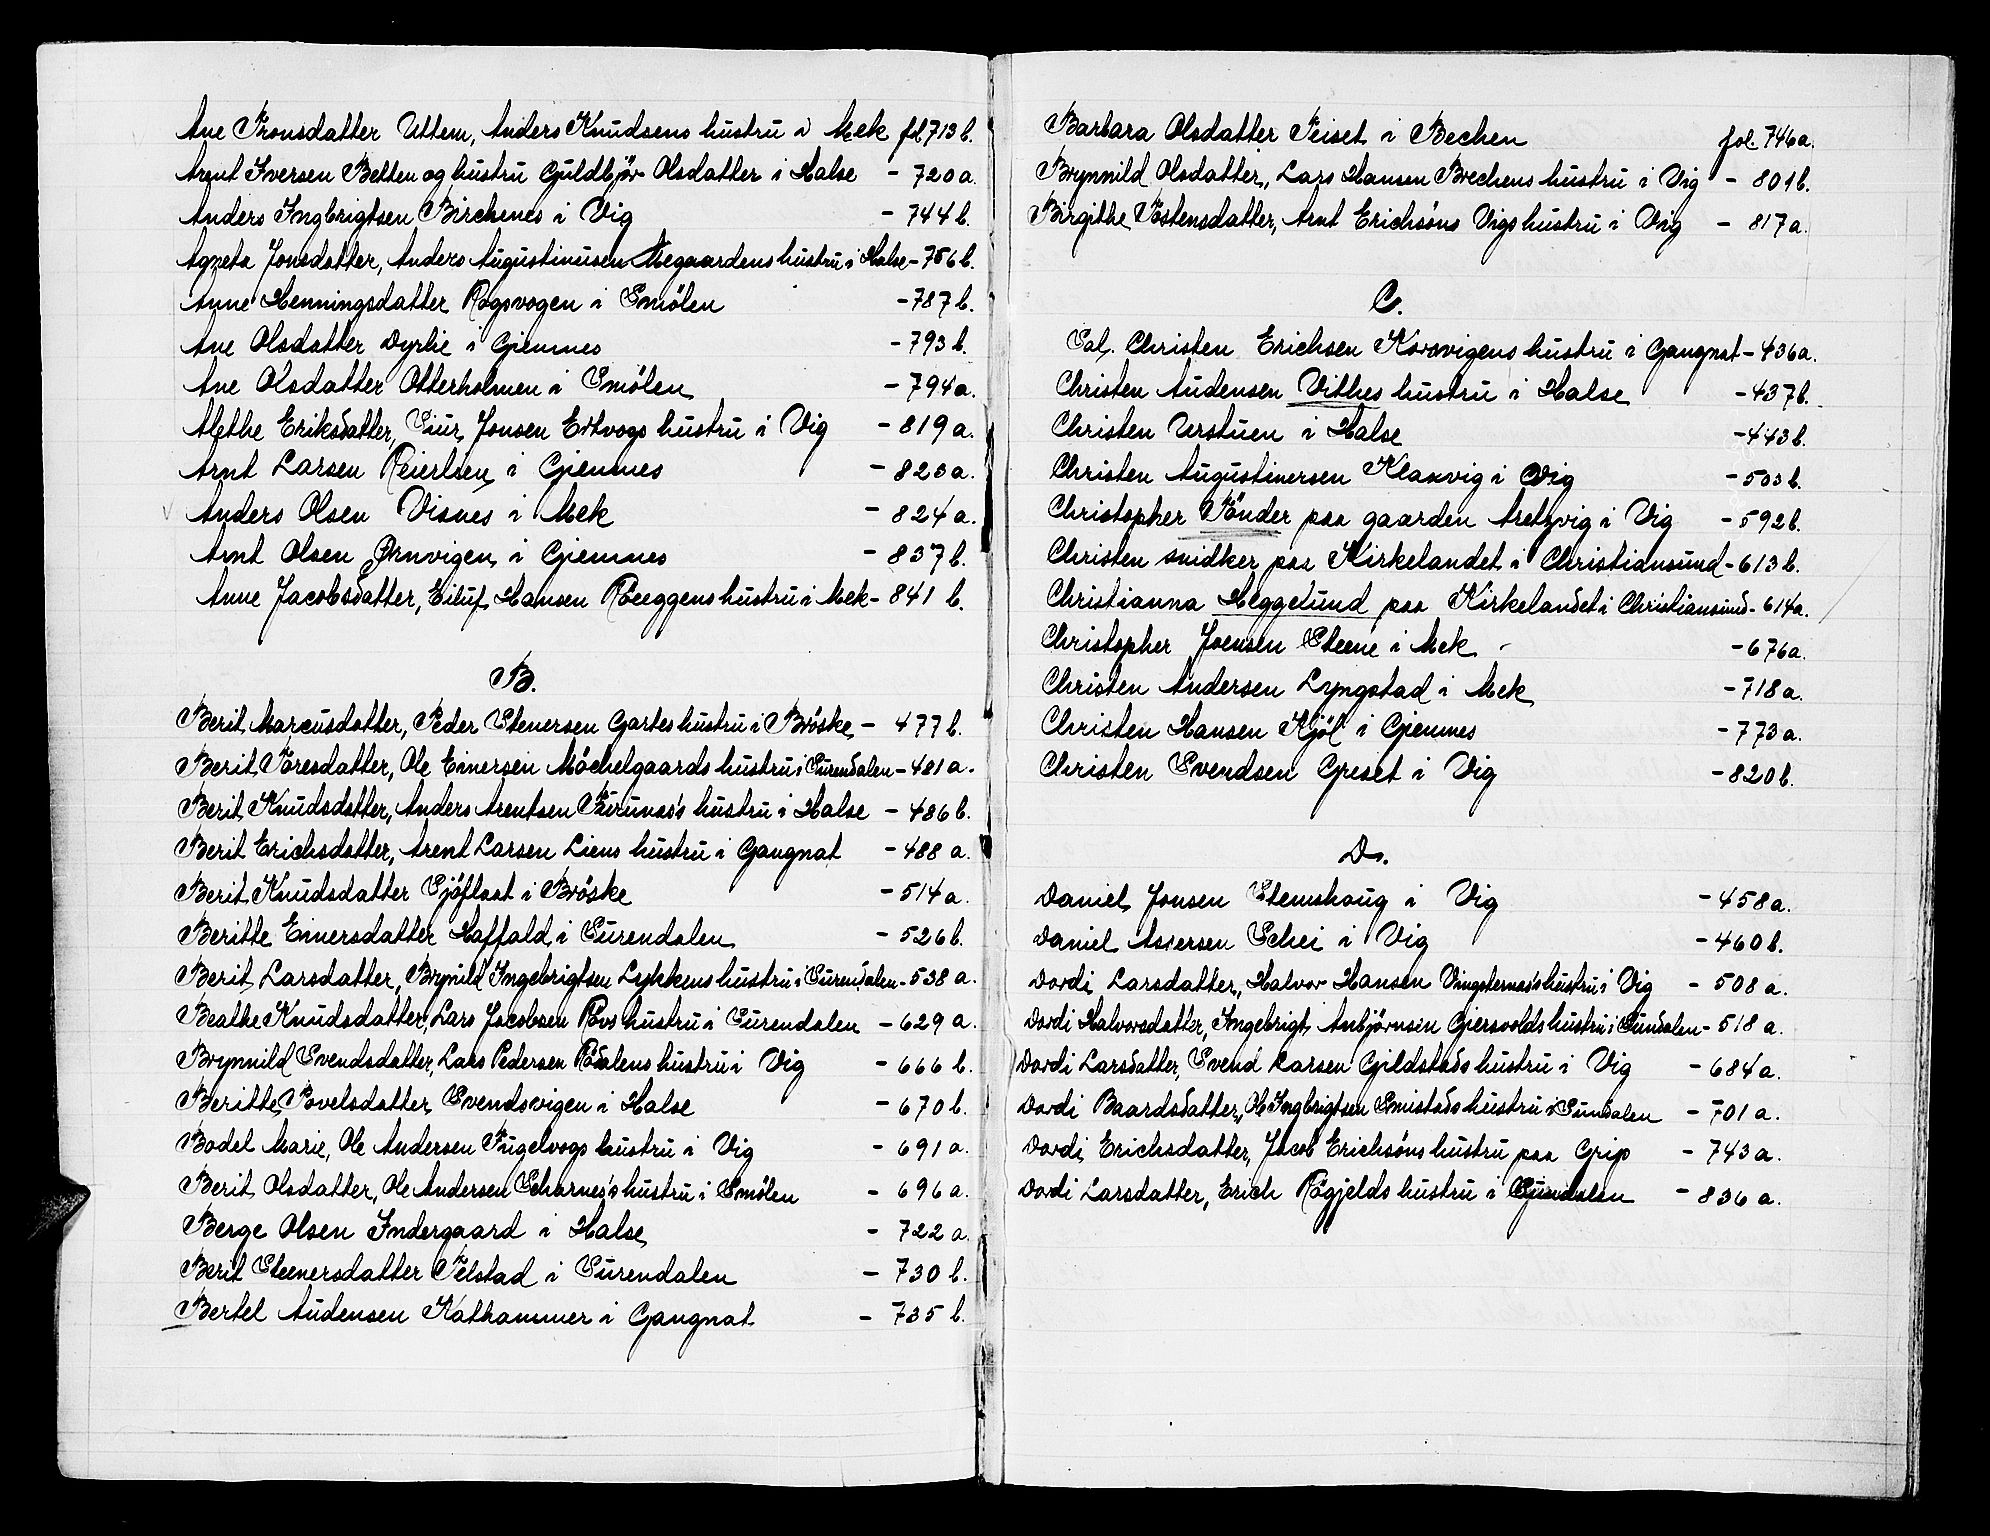 Ane Tronsdatter Uttem, Anders Knudsens hustru i Mek fol 713 b.
Arent Iversen Betten og hustru Guldbjör Olsdatter i Halse - 720 a.
Anders Ingbrigtsen Birchenes i Vig - 744 b.
Agneta Jonsdatter, Anders Augustinusen Megaardens hustru i Halse - 756 b.
Anne Henningsdatter Rogsvogen i Smölen - 787 b.
Ane Olsdatter Dyrlie i Gjemnes - 793 b.
Ane Olsdatter Otterholmen i Smölen - 794 a.
Alethe Eriksdatter, Siur Jonsen Ertvogs hustru i Vig - 819 a.
Arnt Larsen Reiertsen i Gjemnes - 823 a.
Anders Olsen Visnes i Mek - 824 a.
Arnt Olsen Ornvigen i Gjemnes - 837 b.
Anne Jacobsdatter, Eiluf Hansen Roeggens hustru i Mek - 841 b.
B.
Berit Marcusdatter, Peder Stenersen Gartes hustru i Bröske - 477 b.
Berit Toresdatter, Ole Einersen Möchelgaards hustru i Surendalen - 481 a.
Berit Knudsdatter, Anders Arentsen Furunes's hustru i Halse - 486 b.
Berit Erichsdatter, Arent Larsen Liens hustru i Gangnat - 488 a.
Berit Knudsdatter Sjöflaat i Bröske - 514 a.
Beritte Einersdatter Haffald i Surendalen - 526 b.
Berit Larsdatter, Brynild Ingebrigtsen Lykkens hustru i Surendalen - 538 a.
Beathe Knudsdatter, Lars Jacobsen Rovs hustru i Surendalen - 629 a.
Brynnild Svendsdatter, Lars Pedersen Rödalens hustru i Vig - 666 b.
Beritte Povelsdatter Svendsvigen i Halse - 670 b.
Bodel Marie, Ole Andersen Fugelvogs hustru i Vig - 691 a.
Berit Olsdatter, Ole Andersen Scharnes's hustru i Smölen - 696 a.
Berge Olsen Indergaard i Halse - 722 a.
Berit Steenersdatter Telstad i Surendalen - 730 b.
Bertel Audensen Kathammer i Gangnat - 735 b.
Barbara Olsdatter Teiset i Bechen fol. 746 a.
Brynnild Olsdatter, Lars Hansen Brechens hustru i Vig - 801 b.
Birgithe Töstensdatter, Arnt Erichsöns Vigs hustru i Vig - 817 a.
C.
Sal. Christen Erichsen Korsvigens hustru i Gangnat - 436 a.
Christen Audensen Vithes hustru i Halse - 437 b.
Christen Urstuen i Halse - 443 b.
Christen Augustinersen Klakvig i Vig - 503 b.
Christopher Tönder paa gaarden Aretzvig i Vig - 592 b.
Christen snidker paa Kirkelandet i Christiansund - 613 b.
Christianna Heggelund paa Kirkelandet i Christiansund - 614 a.
Christopher Joensen Steene i Mek - 676 a.
Christen Andersen Lyngstad i Mek - 718 a.
Christen Hansen Kjöl i Gjemnes - 773 a.
Christen Svendsen Greset i Vig - 820 b.
D.
Daniel Jonsen Stemshaug i Vig - 458 a.
Daniel Asversen Schei i Vig - 460 b.
Dordi Larsdatter, Halvor Hansen Vingsternes's hustru i Vig - 508 a.
Dordi Halvorsdatter, Ingebrigt Anbjörnsen Gjersvolds hustru i Sundalen - 518 a.
Dordi Larsdatter, Svend Larsen Gildstads hustru i Vig - 684 a.
Dordi Baardsdatter, Ole Ingbrigtsen Smistads hustru i Sundalen - 701 a.
Dordi Erichsdatter, Jacob Erichsöns hustru paa Grip - 743 a.
Dordi Larsdatter, Erich Rögjelds hustru i - 836 a.